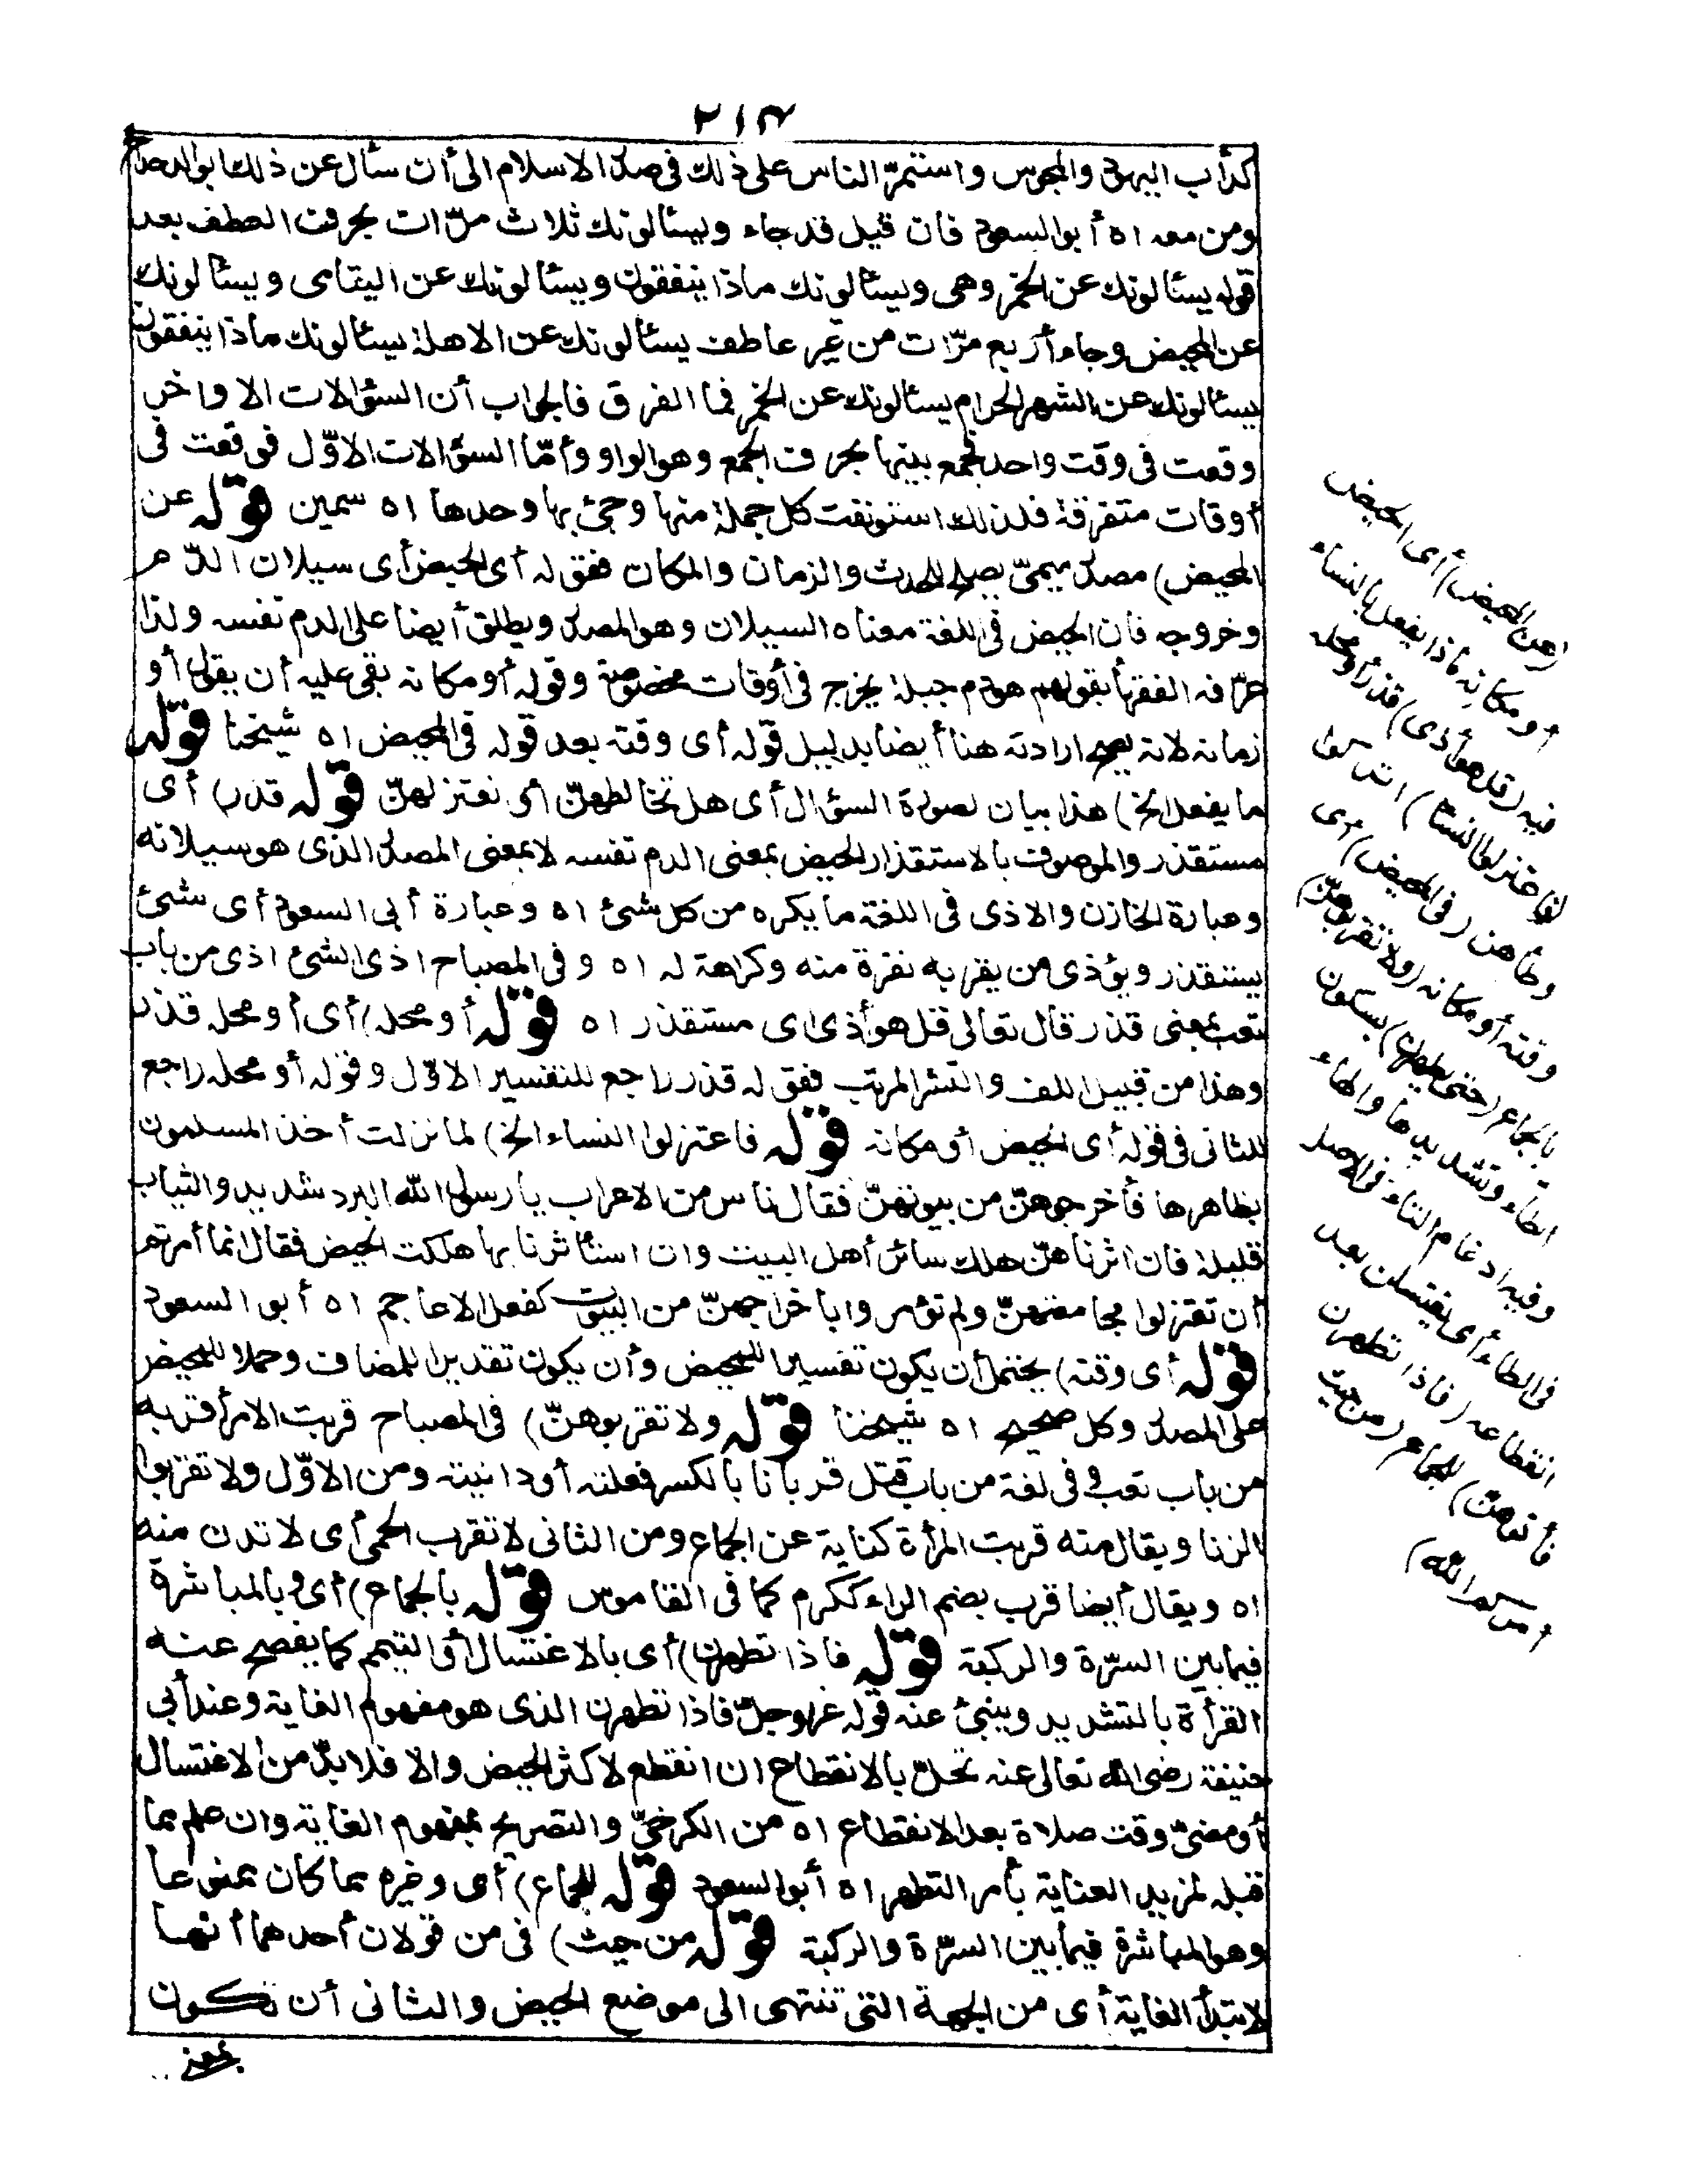 ٢١٣
كدأب اليهود والمجوس واستمرّ الناس على ذلك فى صدر الاسلام الى أن سأل عن ذلك أبو الدحداح
ومن معه اه أبو السعود فان قيل قد جاء ويسئالونك ثلاث مرّات بحرف العطف بعد
قوله يسئالونك عن الخمر وهى ويسئالونك ماذا ينفقون ويسئالونك عن اليتامى ويسئالونك
عن المحيض وجاء أربع مرّات من غير عاطف يسئالونك عن الاهلة يسئالونك ماذا ينفقون
يسئالونك عن الشهر الحرام يسئالونك عن الخمر فما الفرق فالجواب أن السؤالات الاواخر
وقعت فى وقت واحد فجمع بينها بحرف الجمع وهو الواو وأمّا السؤالات الاوّل فوقعت فى
أوقات متفرقة فلذلك استونفت كل جملة منها وجئ بها وحدها اه سمين قوله عن
المحيض) مصدر ميمىّ يصلح للحدث والزمان والمكان فقوله أى الحيض أى سيلان الدّم
وخروجه فان الحيض فى اللغة معناه السيلان وهو المصدر ويطلق أيضا على الدم نفسه ولذا
عرّفه الفقهاء بقولهم هو دم جبلة يخرج فى أوقات مخصوصة وقوله أو مكانه بقى عليه أن يقول أو
زمانه لانه يصح ارادته هنا أيضا بدليل قوله أى وقته بعد قوله فى المحيض اه شيخنا قوله
ما يفعل الخ) هذا بيان لصورة السؤال أى هل نخالطهنّ أى نعتزلهنّ قوله قذر) أى
مستقذر والموصوف بالاستقذار الحيض بمعنى الدم نفسه لا بمعنى المصدر الذى هو سيلانه
وعبارة الخازن والاذى فى اللغة ما يكره من كل شئ اه وعبارة أبى السعود أى شئ
يستقذر ويؤذى من يقربه نفرة منه وكراهة له اه وفى المصباح اذى الشئ اذى من باب
تعب بمعنى قذر قال تعالى قل هو أذى اى مستقذر اه قوله أو محله) أى أو محله قذر
وهذا من قبيل اللف والنشر المرتب فقوله قذر راجع للتفسير الاوّل وقوله أو محله راجع
للثانى فى قوله أى الحيض أو مكانه قوله فاعتزلوا النساء الخ) لما نزلت أخذ المسلمون
بظاهرها فأخرجوهنّ من بيوتهنّ فقال ناس من الاعراب يا رسول الله البرد شديد والثياب
قليلة فان اثرناهنّ هلك سائر أهل البيت وان استأثرنا بها هلكت الحيض فقال انما أمرتم
أن تعتزلوا مجامعتهنّ ولم تؤمروا باخراجهنّ من البيوت كفعل الاعاجم اه أبو السعود
قوله أى وقته) يحتمل أن يكون تفسيرا للمحيض وأن يكون تقديرا للمضاف وحملا للمحيض
على المصدر وكل صحيح اه شيخنا قوله ولا تقربوهنّ) فى المصباح قربت الامر أقربه
من باب تعب وفى لغة من باب قتل قربانا بالكسر فعلته أو دانيته ومن الاوّل ولا تقربوا
الزنا ويقال منه قربت المرأة كناية عن الجماع ومن الثانى لا تقرب الحمى أى لا تدن منه
اه ويقال أيضا قرب بضم الراء ككرم كما فى القاموس قوله بالجماع) أى وبالمباشرة
فيما بين السرّة والركبة قوله فاذا تطهرن) أى بالاغتسال أو التيمم كما يفصح عنه
القرأة بالتشديد وينبئ عنه قوله عز وجلّ فاذا تطهرن الذى هو مفهوم الغاية وعند أبى
حنيفة رضى الله تعالى عنه تحلّ بالانقطاع ان انقطع لاكثر الحيض والا فلا بدّ من الاغتسال
أو مضىّ وقت صلاة بعد الانقطاع اه من الكرخىّ والتصريح بمفهوم الغاية وان علم مما
قبله لمزيد العناية بأمر التطهر اه أبو السعود قوله للجماع) أى وغيره مما كان ممنوعا
وهو المباشرة فيما بين السرّة والركبة قوله من حيث) فى من قولان أحدهما أنها
لابتدأ الغاية أى من الجهة التى تنتهى الى موضع الحيض والثانى أن تكون
بمعنى
(عن المحيض) أى الحيض
أو مكانه ماذا يفعل بالنساء
فيه (قل هو أذى) قذر أو محله
(فاعتزلوا النساء) اتركوا
وطأهن (فى المحيض) أى
وقته أو مكانه (ولا تقربوهنّ)
بالجماع (حتى يطهرن) بسكون
الطاء وتشديدها والهاء
وفيه ادغام التاء فى الاصل
فى الطاء أى يغتسلن بعد
انقطاعه (فاذا تطهرن
فأتوهن) للجماع (من حيث
أمركم الله)